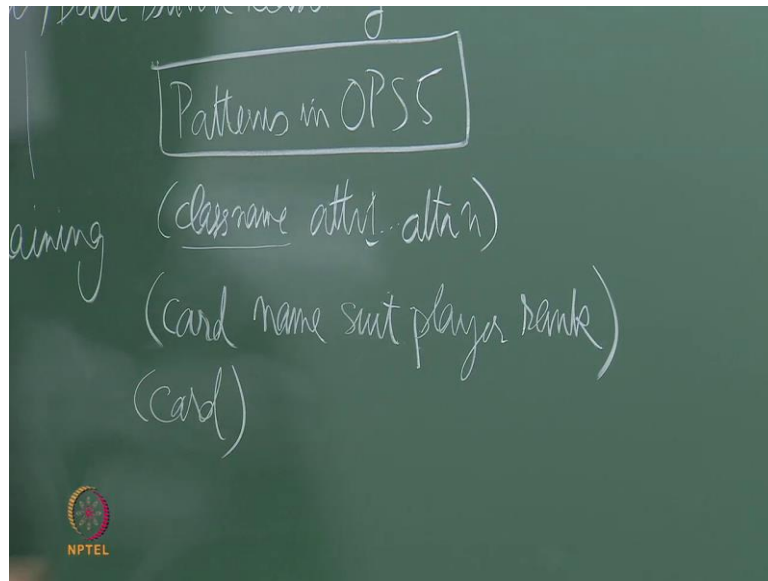 Patterns in OPS5
(classname attr1..attr n)
aining
(card name suit player rank)
(card)
NPTEL